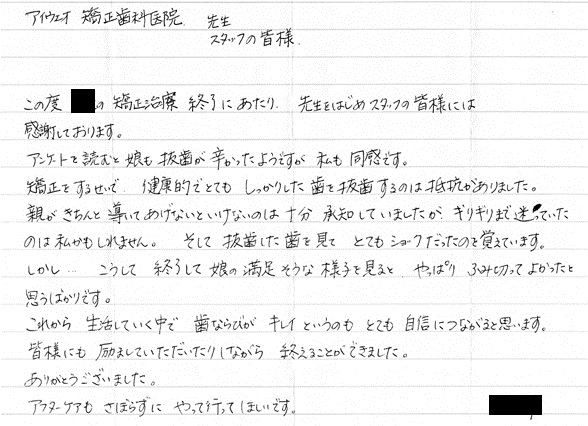 アイウエオ 矯正歯科医院 先生
スタッフの皆様
この度 の 矯正治療 終了にあたり、先生をはじめスタッフの皆様には
感謝しております。
アンケートを読むと娘も抜歯が辛かったようですが 私も同感です。
矯正をするせいで 健康的でとても しっかりした歯を抜歯するのは抵抗がありました。
親がきちんと導いてあげないといけないのは十分 承知していましたが、ギリギリまで迷っていた
のは私かもしれません。 そして 抜歯した歯を見て とてもショックだったのを覚えています。
しかし… こうして 終了して娘の満足そうな様子を見ると、やっぱり ふみ切ってよかったと
思うばかりです。
これから 生活していく中で 歯ならびが キレイというのも とても 自信につながると思います。
皆様にも 励ましていただいたりしながら 終えることができました。
ありがとうございました。
アフターケアも さぼらずに やって行ってほしいです。